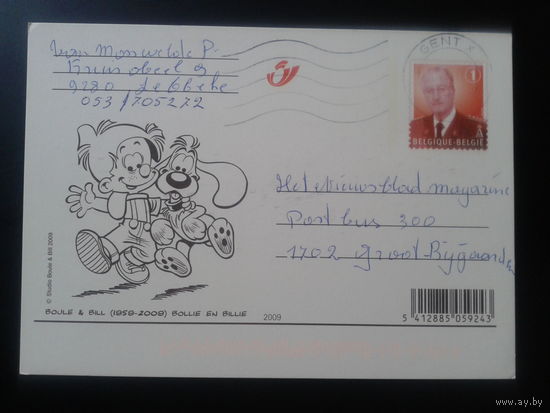 Van Monwelde P.
9280 Lebbeke
053/705272
GENT X
1
A
BELGIQUE-BELGIË
Het nieuwsblad magazine
Postbus 300
1702 Groot-Bijgaarden
© Studio Boule & Bill 2009
BOULE & BILL (1959-2009) BOLLIE EN BILLIE
2009
5 412885 059243
www.ay.by